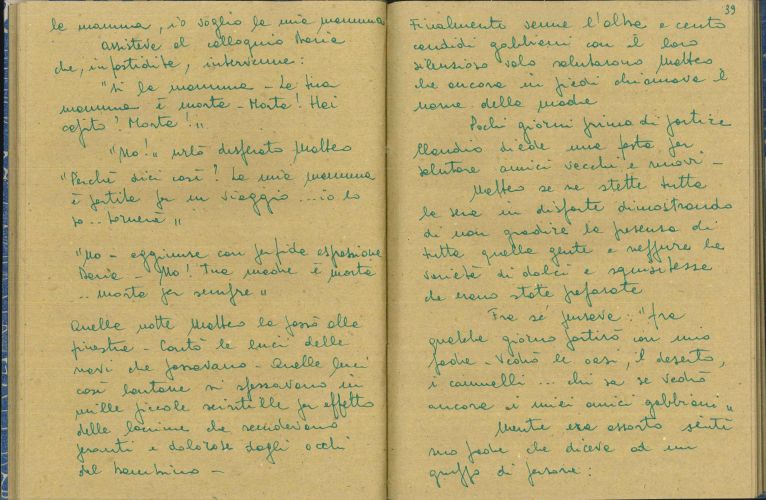 la mamma, io voglio la mia mamma
assisteva al colloquio Daria
che, infastidita, intervenne:
"Sì la mamma – La tua
mamma è morta – Morta! Hai
capito? Morta!"
"No!" urlò disperato Matteo
"Perchè dici così? La mia mamma
è partita per un viaggio ... io lo
so .. tornerà"
"No – aggiunse con perfida espressione
Daria – No! Tua madre è morta
.. morta per sempre"
Quella notte Matteo la passò alla
finestra – Contò le luci delle
navi che passavano – Quelle luci
così lontane si spezzavano in
mille piccole scintille per effetto
delle lacrime che scendevano
pesanti e dolorose dagli occhi
del bambino –
39
Finalmente venne l'alba e cento
candidi gabbiani con il loro
silenzioso volo salutarono Matteo
che ancora in piedi chiamava il
nome della madre
Pochi giorni prima di partire
Claudio diede una festa per
salutare amici vecchi e nuovi –
Matteo se ne stette tutta
la sera in disparte dimostrando
di non gradire la presenza di
tutta quella gente e neppure la
varietà di dolci e squisitezze
che erano state preparate
Fra sé pensava: "fra
qualche giorno partirò con mio
padre – Vedrò le oasi, il deserto,
i cammelli ... chi sa se vedrò
ancora i miei amici gabbiani"
Mentre era assorto sentì
suo padre che diceva ad un
gruppo di persone: